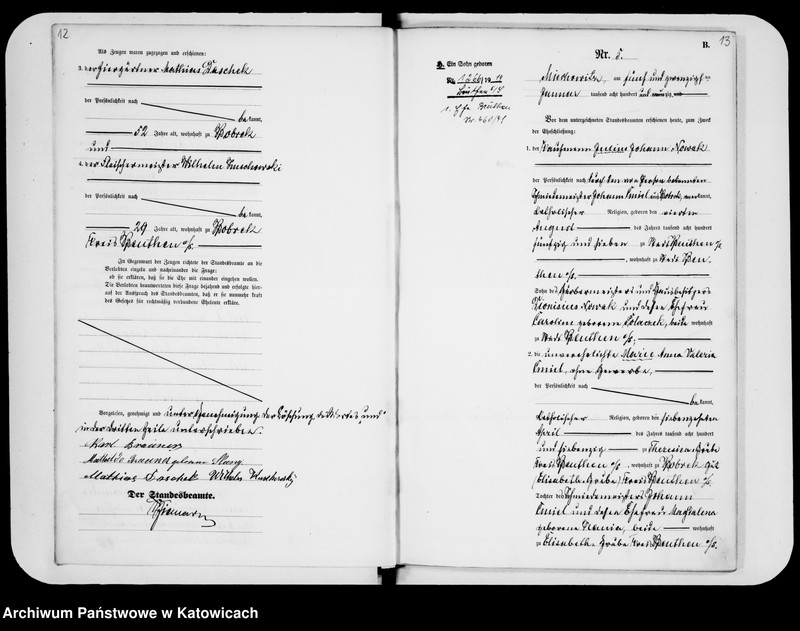 12
Als Zeugen waren zugezogen und erschienen:
3. der Ziergärtner Mathias Daschek
der Persönlichkeit nach
be kannt,
52 Jahre alt, wohnhaft zu Bobrek
und
4. der Fleischermeister Wilhelm
der Persönlichkeit nach
be kannt,
29 Jahre alt, wohnhaft zu Bobrek
Kreis Beuthen o/s.
In Gegenwart der Zeugen richtete der Standesbeamte an die
Verlobten einzeln und nacheinander die Frage:
ob sie erklären, daß sie die Ehe mit einander eingehen wollen.
Die Verlobten beantworteten diese Frage bejahend und erfolgte hier-
auf der Ausspruch des Standesbeamten, daß er sie nunmehr kraft
des Gesetzes für rechtmäßig verbundene Eheleute erkläre.
Vorgelesen, genehmigt und unter Genehmigung der Löschung des Wortes „und“
in der dritten Zeile unterschrieben.
Mathias Daschek Wilhelm
Der Standesbeamte.
13
B.
Ein Sohn geboren
Nr. 5.
am fünf und zwanzigsten
Januar tausend acht hundert
Vor dem unterzeichneten Standesbeamten erschienen heute, zum Zweck
der Eheschließung:
1. der Kaufmann Julius Johann Nowak
der Persönlichkeit nach durch den von Person bekannten
Schmiedemeister Johann Cmiel aus Bobrek, anerkannt,
katholischer Religion, geboren den vierten
August des Jahres tausend acht hundert
sechzig und sieben zu Stadt Beuthen o/s
, wohnhaft zu Stadt Beu-
then o/s.
Sohn des Gerbermeisters und Hausbesitzers
Dionisius Nowak und dessen Ehefrau
Caroline geborene Polaczek, beide wohnhaft
zu Stadt Beuthen o/s.
2. die unverehelichte Marie Anna Valeria
Cmiel, ohne Gewerbe,
der Persönlichkeit nach
be kannt,
katholischer Religion, geboren den siebenzehnten
April des Jahres tausend acht hundert
und siebenzig zu Theresien Grube
Kreis Beuthen o/s, wohnhaft zu Bobrek
(Elisabeth-Grube) Kreis Beuthen o/s.
Tochter des Schmiedemeisters Johann
Cmiel und dessen Ehefrau Magdalena
geborene Kania, beide wohnhaft
zu Elisabeth-Grube Kreis Beuthen o/s.
Archiwum Państwowe w Katowicach